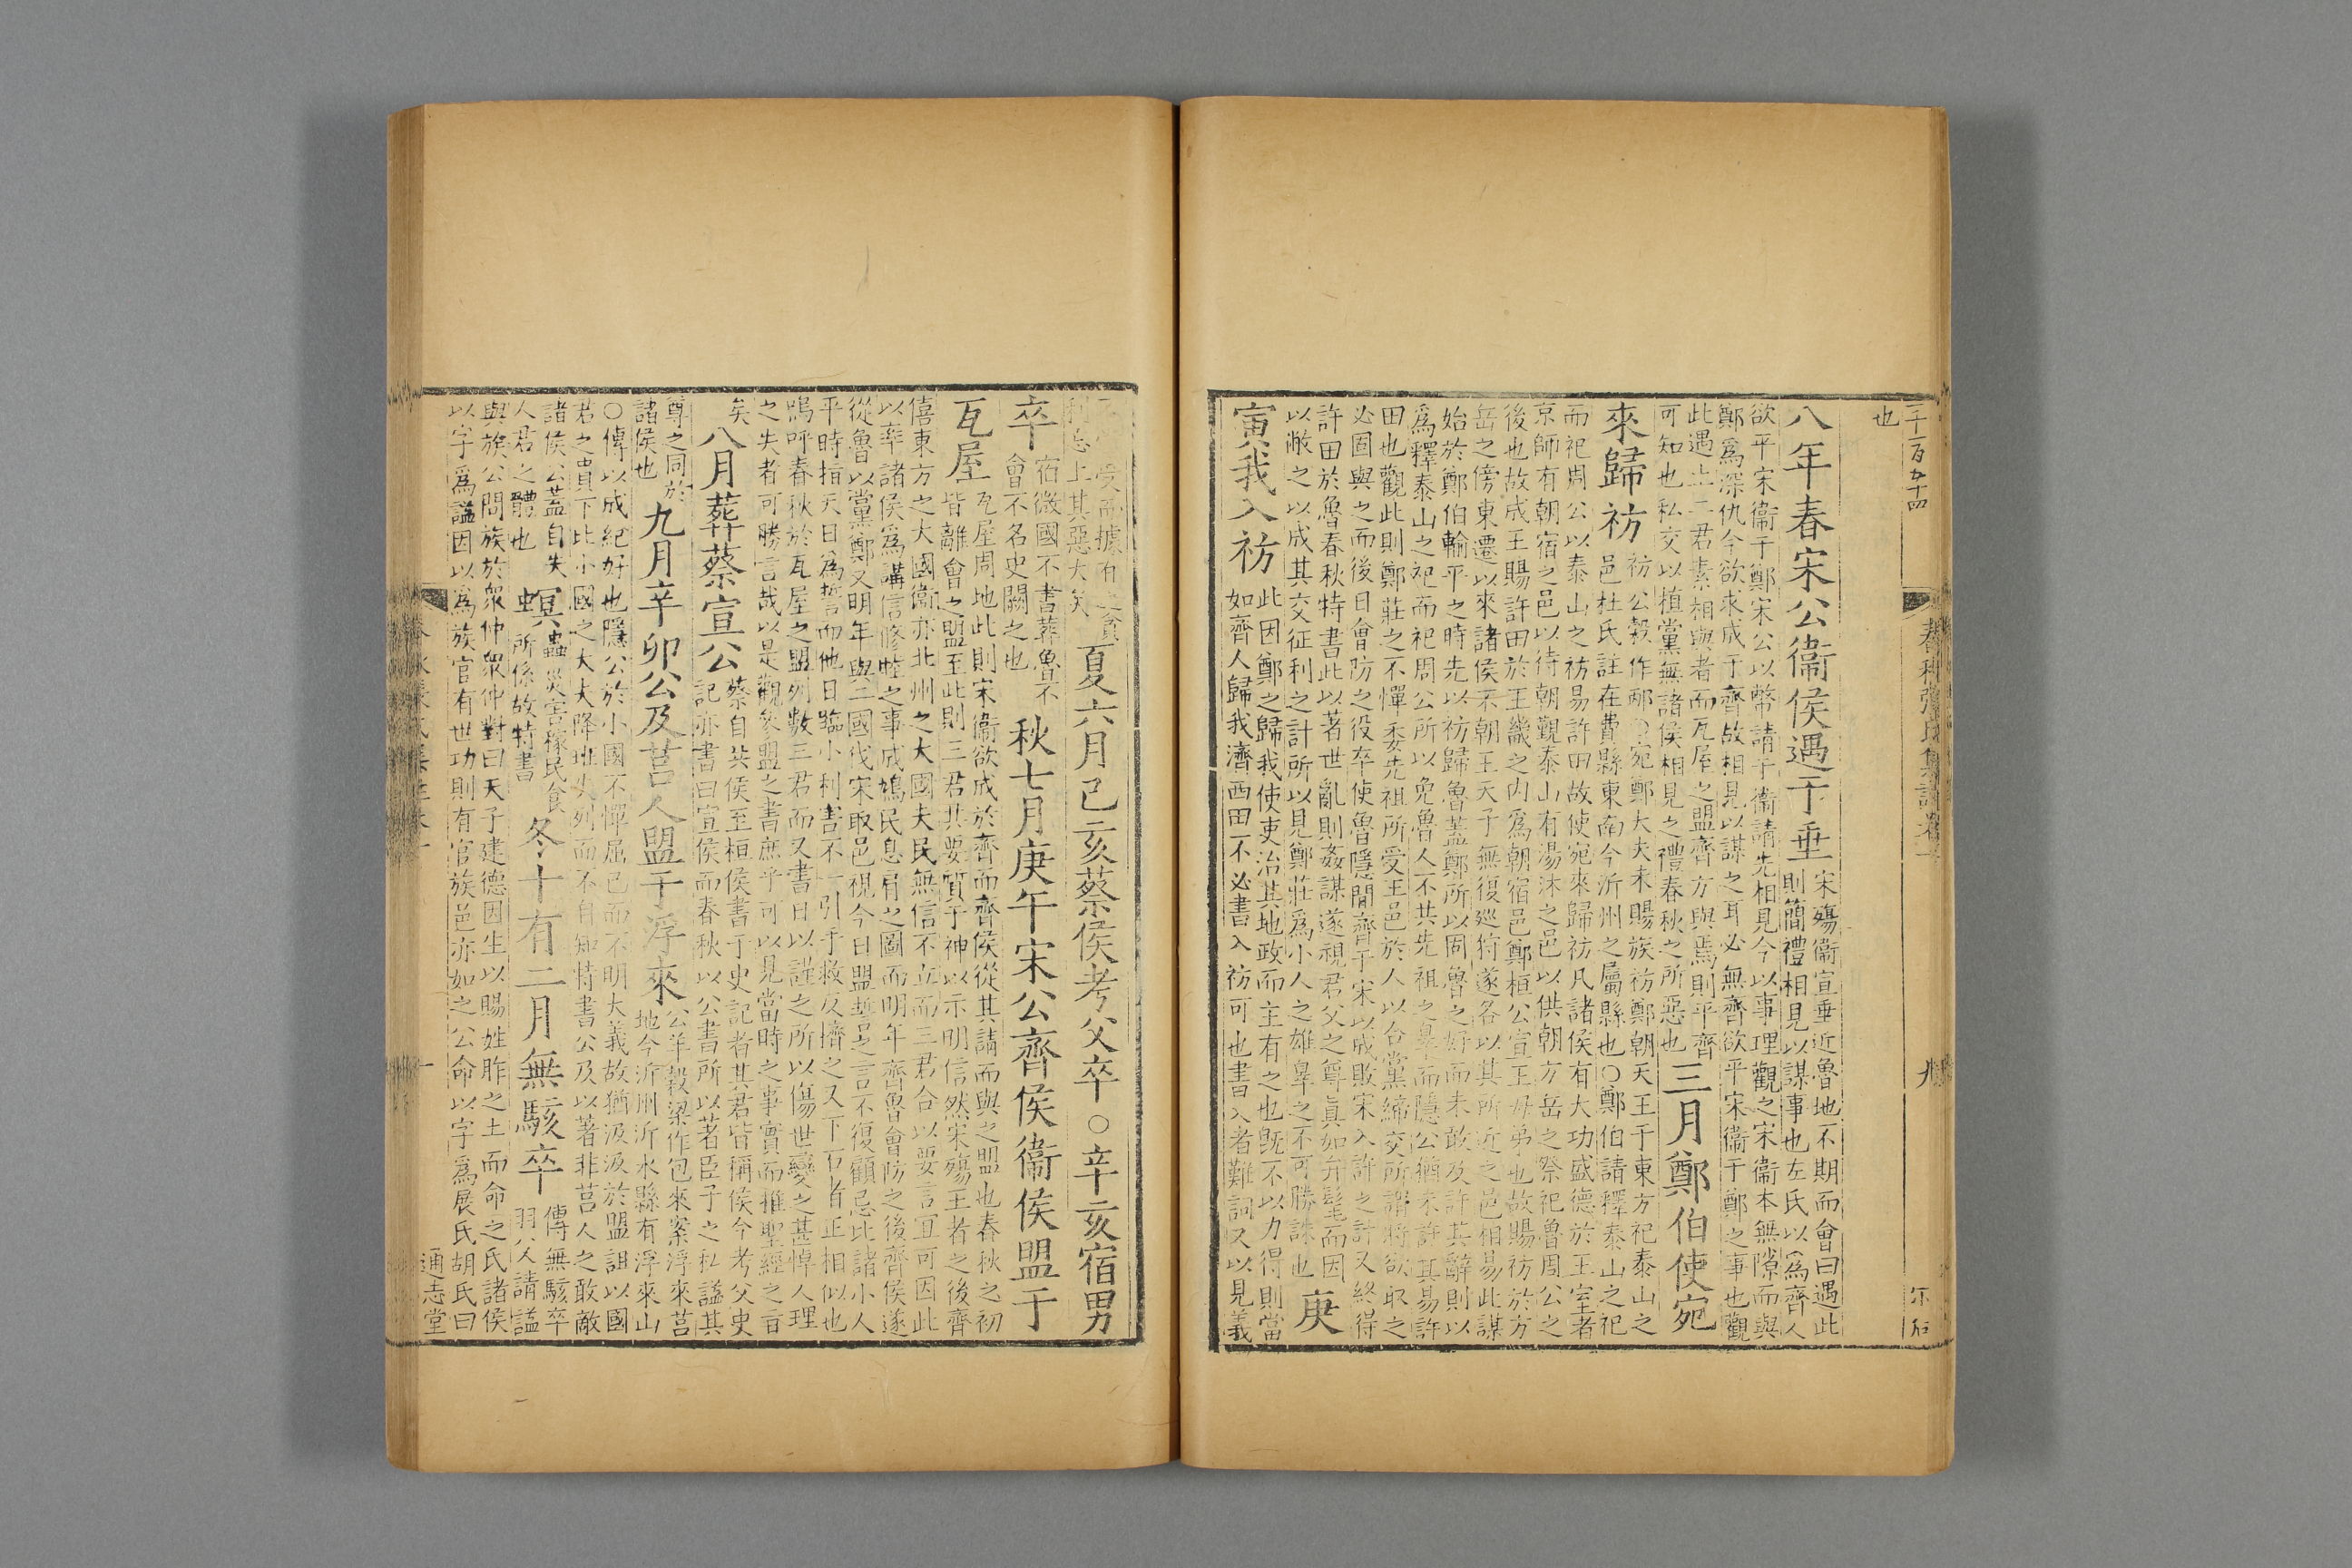 二千一百五十四
春秋張氏集註卷一
九
也
八年春宋公衞侯遇于垂
宋殤衞宣垂近魯地不期而會曰遇此
則簡禮相見以謀事也左氏以爲齊人
欲平宋衞于鄭宋公以幣請于衞請先相見今以事理觀之宋衞本無隙而與
鄭爲深仇今欲求成于齊故相見以謀之耳必無齊欲平宋衞于鄭之事也觀
此遇止二君素相與者而瓦屋之盟齊方與焉則平齊
可知也私交以植黨無諸侯相見之禮春秋之所惡也
三月鄭伯使宛
來歸祊
祊公穀作邴○宛鄭大夫未賜族祊鄭朝天王于東方祀泰山之
邑杜氏註在費縣東南今沂州之屬縣也○鄭伯請釋泰山之祀
而祀周公以泰山之祊易許田故使宛來歸祊凡諸侯有大功盛德於王室者
京師有朝宿之邑以待朝覲泰山有湯沐之邑以供朝方岳之祭祀魯周公之
後也故成王賜許田於王畿之内爲朝宿邑鄭桓公宣王母弟也故賜祊於方
岳之傍東遷以來諸侯不朝王天子無復巡狩遂各以其所近之邑相易此謀
始於鄭伯輸平之時先以祊歸魯蓋鄭所以固魯之好而未敢及許其辭則以
爲釋泰山之祀而祀周公所以免魯人不共先祖之辠而隱公猶未許其易許
田也觀此則鄭莊之不憚委先祖所受王邑於人以合黨締交所謂將欲取之
必固與之而後日會防之役卒使魯隱間齊于宋以成敗宋入許之計又終得
許田於魯春秋特書此以著世亂則姦謀遂視君父之尊眞如弁髦而因
以敝之以成其交征利之計所以見鄭莊爲小人之雄辠之不可勝誅也
庚
寅我入祊
此因鄭之歸我使吏治其地政而主有之也既不以力得則當
如齊人歸我濟西田不必書入祊可也書入者難詞又以見義
受而據有之
上其惡大矣
夏六月己亥蔡侯考父卒○辛亥宿男
卒
宿微國不書葬魯不
會不名史闕之也
秋七月庚午宋公齊侯衞侯盟于
瓦屋
瓦屋周地此則宋衞欲成於齊而齊侯從其請而與之盟也春秋之初
皆離會之盟至此則三君共要質于神以示明信然宋殤王者之後齊
僖東方之大國衞亦北州之大國夫民無信不立而三君合以要言宜可因此
以率諸侯爲講信修睦之事成鳩民息肩之圖而明年齊魯會防之後齊侯遂
從魯以黨鄭又明年與二國伐宋取邑視今日盟誓之言不復顧忌比諸小人
平時指天日爲誓而他日臨小利害不一引手救反擠之又下石者正相似也
嗚呼春秋於瓦屋之盟列數三君而又書日以謹之所以傷世變之甚悼人理
之失者可勝言哉以是觀參盟之書庶乎可以見當時之事實而推聖經之言
矣
八月葬蔡宣公
蔡自共侯至桓侯書于史記者其君皆稱侯今考父史
記亦書曰宣侯而春秋以公書所以著臣子之私謚其
尊之同於
諸侯也
九月辛卯公及莒人盟于浮來
公羊穀梁作包來案浮來莒
地今沂州沂水縣有浮來山
○傳以成紀好也隱公於小國不憚屈已而不明大義故猶汲汲於盟詛以國
君之貴下此小國之大夫降班失列而不自知特書公及以著非莒人之敢敵
諸侯公蓋自失
人君之體也
螟
蟲災害稼民食
所係故特書
冬十有二月無駭卒
傳無駭卒
羽父請謚
與族公問族於衆仲衆仲對曰天子建德因生以賜姓胙之土而命之氏諸侯
以字爲謚因以爲族官有世功則有官族邑亦如之公命以字爲展氏胡氏曰
通志堂